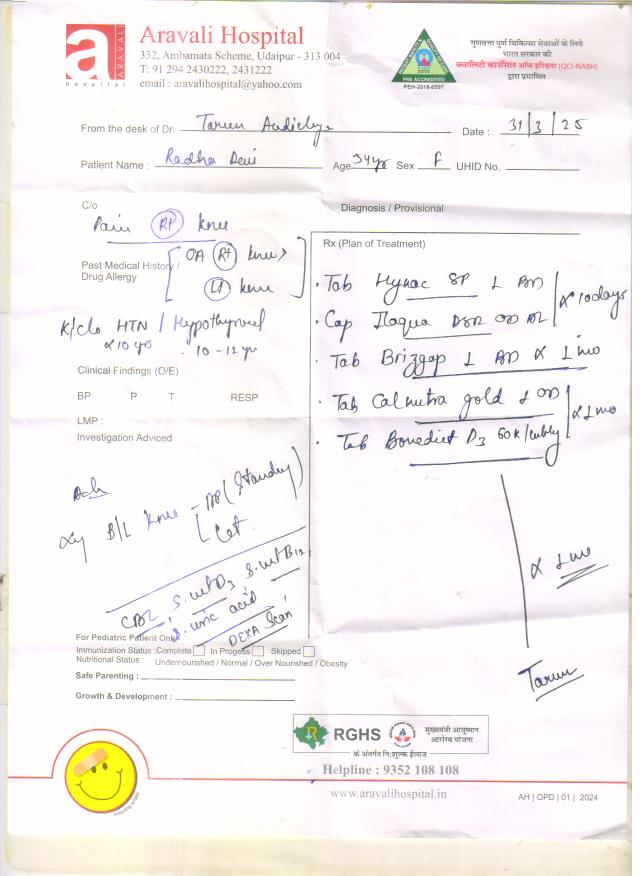 Aravali Hospital
332, Ambamata Scheme, Udaipur - 313 004
T: 91 294 2430222, 2431222
email : aravalihospital@yahoo.com
a
ARAVALI
hospital
PRE ACCREDITED
PEH-2018-0597
गुणवत्ता पुर्ण चिकित्सा सेवाओं के लिये
भारत सरकार की
क्वालिटी काउंसिल ऑफ इण्डिया (QCI-NABH)
द्वारा प्रमाणित
From the desk of Dr. Tarun Audichya Date : 31/3/25
Patient Name : Radha Devi Age 54yr Sex F UHID No.
C/o
Pain Rt knee
Past Medical History /
Drug Allergy
OA Rt knee >
Lt knee
K/c/o HTN / Hypothyroid
x 10 yrs 10-12 yr
Clinical Findings (O/E)
BP P T RESP
LMP :
Investigation Adviced
Adv
Xy B/L knee - AP (Standing)
Lat
CBC S. Vit D3 S. Vit B12
S. uric acid
DEXA Scan
Diagnosis / Provisional
Rx (Plan of Treatment)
· Tab Hynac SP 1 BD
· Cap Ilaqua DSR OD
x 10 days
· Tab Brizgap 1 x 1 mo
· Tab Calnutra gold 1 OD
· Tab Bonedict D3 60K/wkly
x 1 mo
x 1 mo
Tarun
For Pediatric Patient Only
Immunization Status :Complete In Progess Skipped
Nutritional Status : Undernourished / Normal / Over Nourished / Obesity
Safe Parenting :
Growth & Development :
RGHS
मुख्यमंत्री आयुष्मान
आरोग्य योजना
के अंतर्गत नि:शुल्क ईलाज
Helpline : 9352 108 108
www.aravalihospital.in
AH | OPD | 01 | 2024